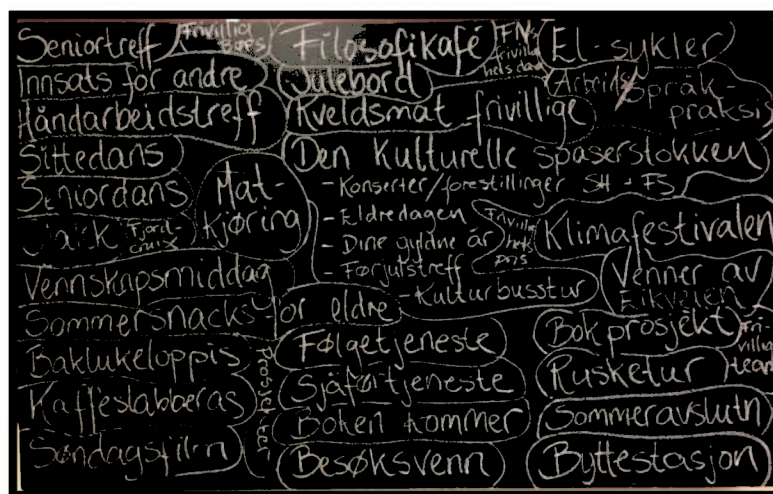 Seniortreff
Frivillig
Børs
Filosofikafé
FNs
frivillig
hets dag
El-sykler
Innsats for andre
Julebord
Arbeids/språk-
praksis
Håndarbeidstreff
Kveldsmat frivillige
Sittedans
Den Kulturelle spaserstokken
- Konserter/forestillinger SH + FS
- Eldredagen
- Dine gyldne år
- Førjulstreff
- Kulturbusstur
Seniordans
Mat-
kjøring
Frivillig
hets
pris
Klimafestivalen
Fjord-
cruix
Vennskapsmiddag
Venner av
Eikvelen
Sommersnacks for eldre
Følgetjeneste
Bokprosjekt
Fri-
villig
team
Baklukeloppis
Prosjekter
Sjåførtjeneste
Rusketur
Kaffeslabberas
Boken kommer
Sommeravslutn
Søndagsfilm
Besøksvenn
Byttestasjon